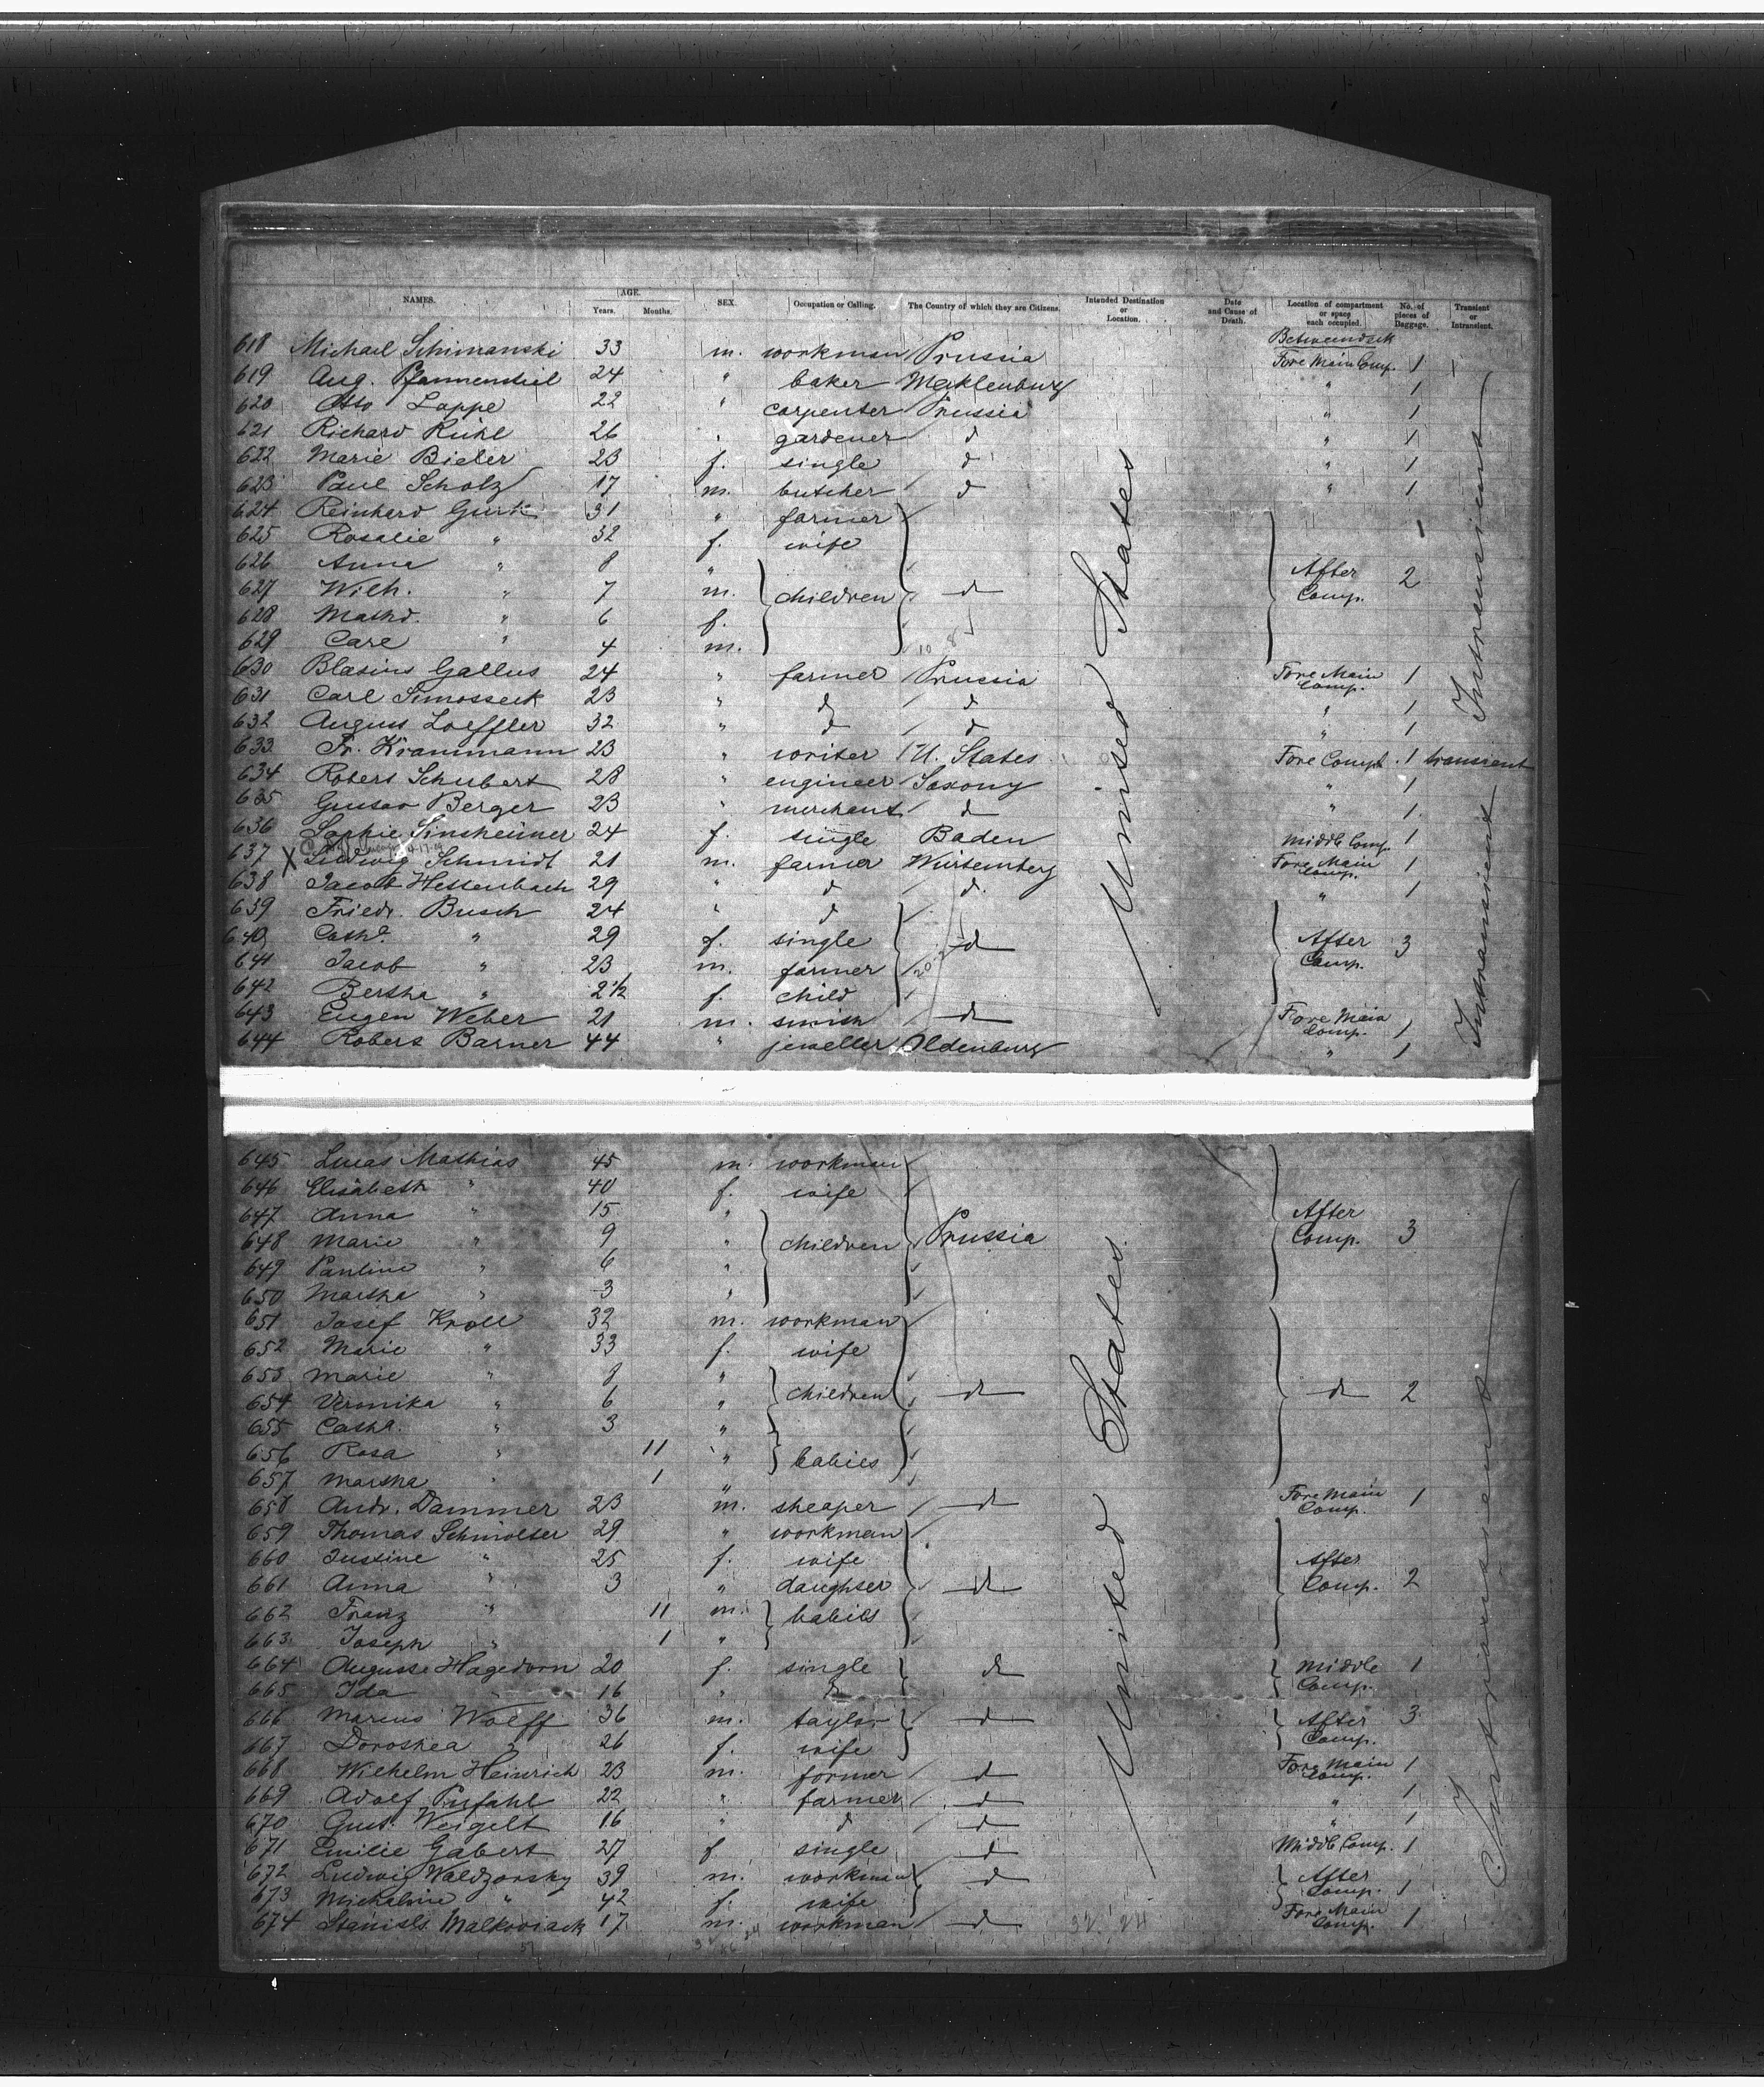 NAMES. AGE. Years. Months. SEX. Occupation or Calling. The Country of which they are Citizens. Intended Destination or Location. Date and Cause of Death. Location of compartment or space each occupied. No. of pieces of Baggage. Transient or Intransient.
618 Michael Schimanski 33 m. workman Prussia Fore Main Comp. 1
619 Aug. Pfannenstiel 24 " baker Mecklenburg " 1
620 Otto Lappe 22 " carpenter Prussia " 1
621 Richard Rühl 26 " gardener d " 1
622 Marie Bieler 23 f. single d " 1
623 Paul Scholz 17 m. butcher d " 1
624 Reinhard Gurk 31 " farmer
625 Rosalie " 32 f. wife
626 Anna " 8 "
627 Wilh. " 7 m. children d After Comp. 2
628 Mathd. " 6 f.
629 Carl " 4 m.
630 Blasius Gallus 24 " farmer Prussia Fore Main Comp. 1
631 Carl Simosseck 23 " d d " 1
632 August Loeffler 32 " d d " 1
633 Fr. Krammann 23 " writer U. States Fore Comp. 1 transient
634 Robert Schubert 28 " engineer Saxony " 1
635 Gustav Berger 23 " merchant d " 1
636 Sophie Sinsheimer 24 f. single Baden Middle Comp. 1
637 X Ludwig Schmidt 21 m. farmer Würtemberg Fore Main Comp. 1
638 Jacob Hettenbach 29 " d d. " 1
639 Friedr. Busch 24 " d
640 Cath. " 29 f. single d After Comp. 3
641 Jacob " 23 m. farmer
642 Bertha " 2 1/2 f. child
643 Eugen Weber 21 m. smith d Fore Main Comp. 1
644 Robert Barner 44 " jeweller Oldenburg " 1
United States
Intransient
Intransient
645 Lucas Mathias 45 m. workman
646 Elisabeth " 40 f. wife
647 Anna " 15 "
648 Marie " 9 " children Prussia After Comp. 3
649 Pauline " 6 "
650 Martha " 3 "
651 Josef Kroll 32 m. workman
652 Marie " 33 f. wife
653 Marie " 8 "
654 Veronika " 6 " children d d 2
655 Catha. " 3 "
656 Rosa " 11 " babies
657 Martha " 1 "
658 Andr. Dammer 23 m. sheaper d Fore Main Comp. 1
659 Thomas Schmolter 29 " workman
660 Justine " 25 f. wife
661 Anna " 3 " daughter d After Comp. 2
662 Franz " 11 m. babies
663 Joseph " 1 "
664 Auguste Hagedorn 20 f. single d Middle Comp. 1
665 Ida 16 " d
666 Marcus Wolff 36 m. taylor d After Comp. 3
667 Dorothea " 26 f. wife
668 Wilhelm Heinrich 23 m. farmer d Fore Main Comp. 1
669 Adolf Pufahl 22 " farmer d " 1
670 Gust. Weigelt 16 " d d " 1
671 Emilie Gabert 27 f single d Middle Comp. 1
672 Ludwig Waldzorsky 39 m. workman d After Comp. 1
673 Michaline " 42 f. wife
674 Stanisls. Malkowiack 17 m. workman d Fore Main Comp. 1
United States
Intransient